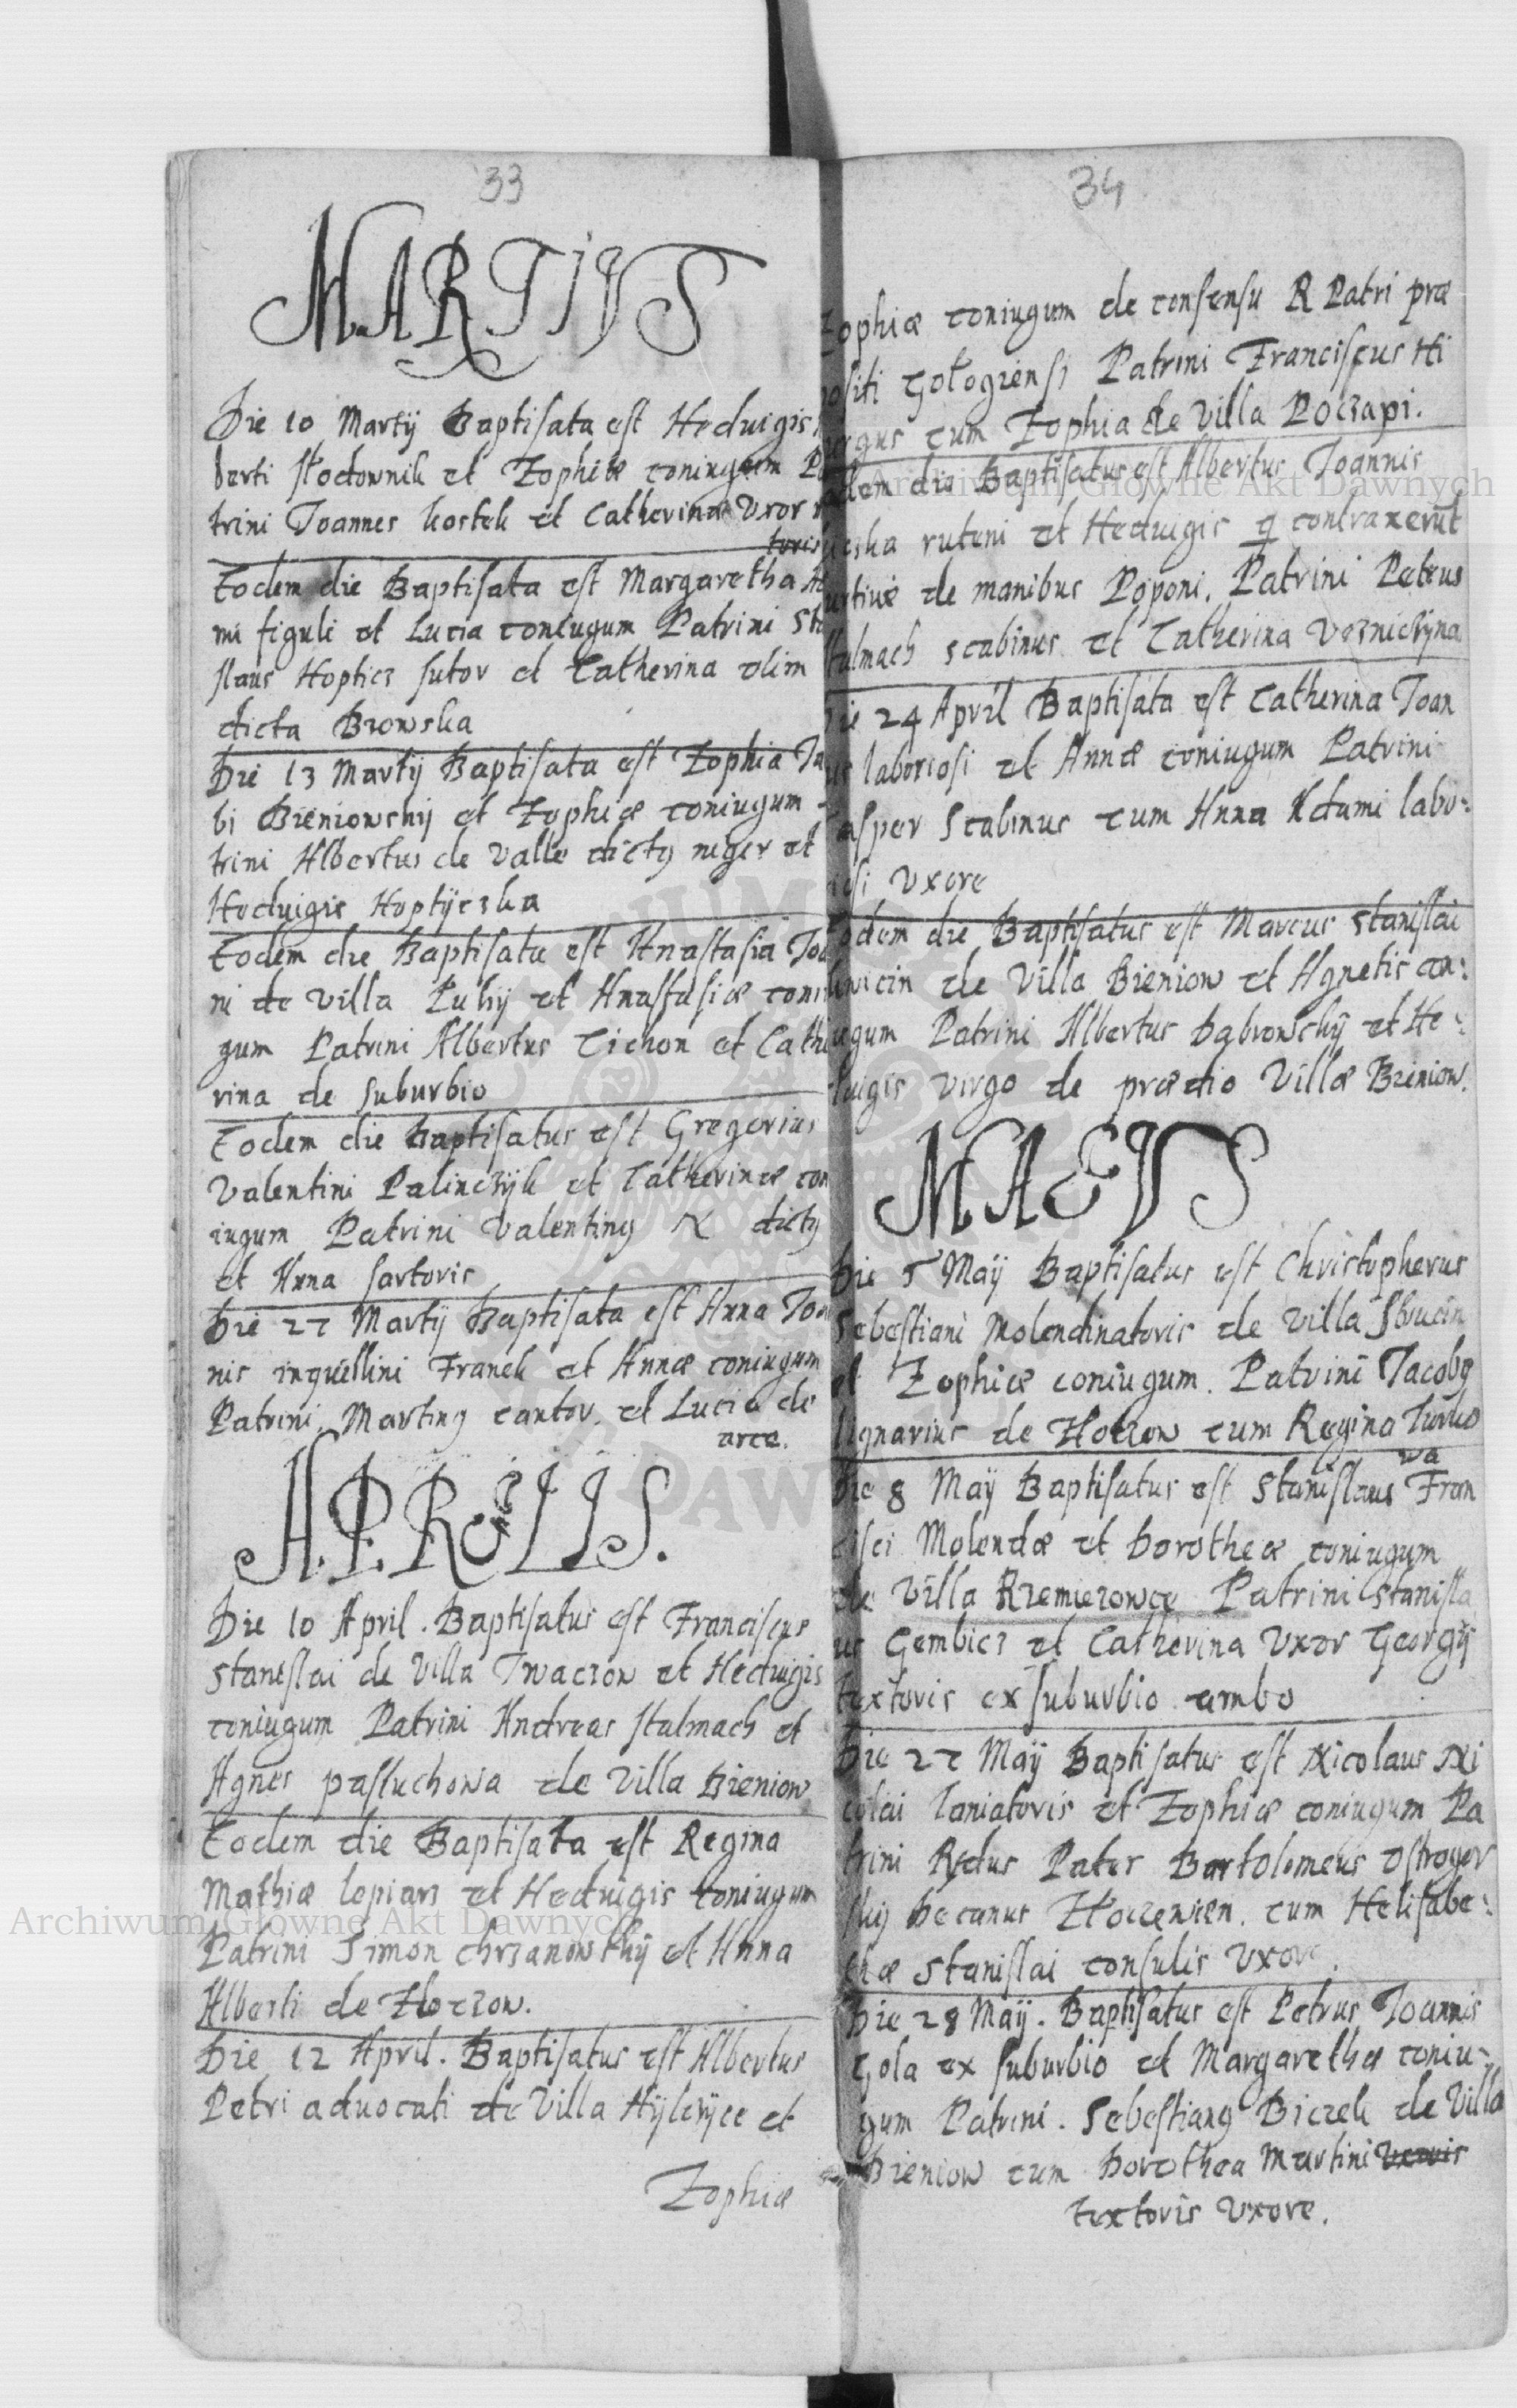 33
MARTIVS
Die 10 Martij Baptisata est Heduigis
berti słodownik et Zophiæ coniugum Pa
trini Joannes kostek et Catherina Vxor
toris
Eodem die Baptisata est Margaretha
mi figuli et Lucia coniugum Patrini Sta
slaus Hopticz sutor et Catherina olim
dicta Browska
Die 13 Martij Baptisata est Zophia Ja
bi Bieniowskij et Zophiæ coniugum
trini Albertus de Valle dictq niger et
Heduigis Hoptijczka
Eodem die Baptisata est Anastasia Joa
ni de Villa Luhij et Anastasiæ coni
gum Patrini Albertus Cichon et Cathe
rina de suburbio
Eodem die Baptisatus est Gregorius
Valentini Palinczijk et Catherinæ con
iugum Patrini Valentinq N dictq
et Anna sartoris
Die 27 Martij Baptisata est Anna Joa
nis inquilini Franek et Annæ coniugum
Patrini. Martinq cantor. et Lucia de
arce.
APRILIS.
Die 10 April. Baptisatus est Franciscus
Stanislai de Villa Trwaczow et Heduigis
coniugum Patrini Andreas stalmach et
Agnes pastuchowa de Villa Bieniow
Eodem die Baptisata est Regina
Mathiæ lopiarz et Heduigis coniugum
Patrini Simon chrzanowskij et Anna
Alberti de Złoczow.
Die 12 April. Baptisatus est Albertus
Petri aduocati de Villa Hijlczijce et
Zophiæ
34
Zophiæ coniugum de consensu R Patri præ
positi Gołogrensi Patrini Franciscus Hi
cum Zophia de Villa Poczapi.
Eodem die Baptisatus est Albertus Joannis
ruteni et Heduigis q contraxerūt
furtiuè de manibus Poponi. Patrini Petrus
stalmach scabinus et Catherina Vozniczijna
Die 24 April Baptisata est Catherina Joan
nis laboriosi et Annæ coniugum Patrini
Casper Scabinus cum Anna Adami labo:
riosi Vxore
Eodem die Baptisatus est Marcus Stanislai
de Villa Bieniow et Agnetis con:
iugum Patrini Albertus Dąbrowskij et He:
duigis virgo de prædio Villæ Bieniow.
MAEVS
Die 5 Maij Baptisatus est Christopherus
Sebastiani Molendinatoris de Villa
et Zophiæ coniugum. Patrini Jacobq
lignarius de Złoczow cum Regina Turko
wa
Die 8 Maij Baptisatus est Stanislaus Fran
cisci Molendæ et Dorotheæ coniugum
de Villa Rzemierowce Patrini Stanisla
us Gembicz et Catherina Vxor Georgij
textoris ex suburbio ambo
Die 27 Maij Baptisatus est Nicolaus Ni
colai laniatoris et Zophiæ coniugum Pa
trini Rndus Pater Bartolomeus Ostrogor
skij Decanus Złoczewien. cum Helisabe:
thæ Stanislai consulis Vxore.
Die 28 Maij. Baptisatus est Petrus Joannis
Gola ex suburbio et Margarethæ coniu-
gum Patrini. Sebastianq Biczek de Villa
Bieniow cum Dorothea Martini
textoris Vxore.
Archiwum Główne Akt Dawnych
Archiwum Główne Akt Dawnych